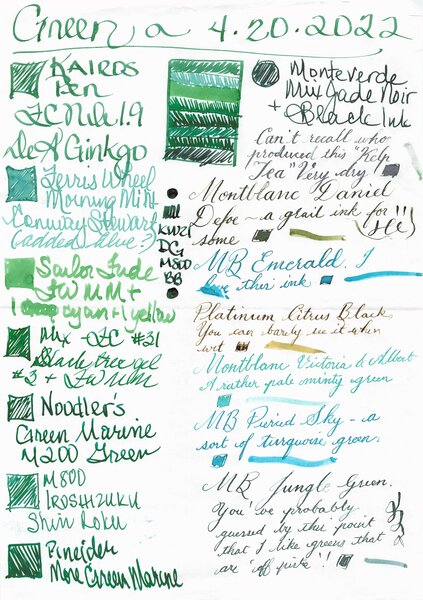 Green a 4.20.2022
KAIROS
Pen
FC Nile 1.9
DeA Ginkgo
Ferris Wheel
Morning Mint
Conway Stewart
(added blue?)
Sailor Jade
FWMM +
cyan + yellow
Mix - FC #31
#3 + FWMM
Noodler's
Green Marine
M200 Green
M800
IROSHIZUKU
Shin Roku
Pineider
More Green Marine
KWZI
DG
M800
BB
Monteverde
MMx Jade Noir
+ Black Ink
Can't recall who
produced this "Kelp
Tea" Very dry!
Montblanc Daniel
Defoe - a grail ink for
some
MB Emerald. I
love this ink
Platinum Citrus Black
You can barely see it when
wet
Montblanc Victoria & Albert
A rather pale minty green
MB Pieried Sky - a
sort of turquoise green.
MB Jungle Green.
You've probably
guessed by this point
that I like greens that
are "off piste"!